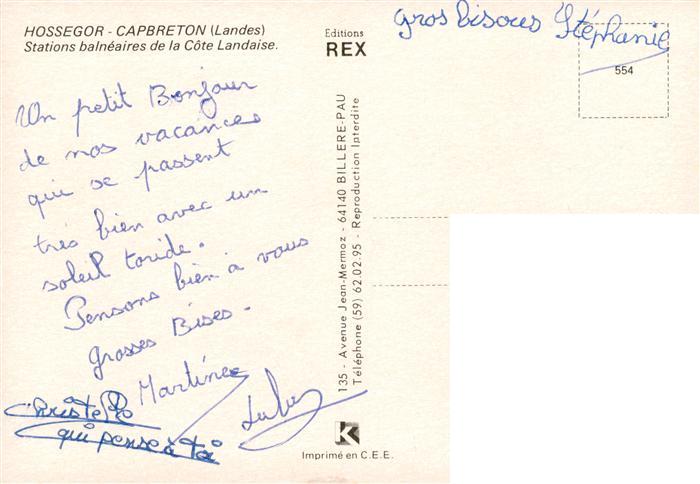 HOSSEGOR - CAPBRETON (Landes)
Stations balnéaires de la Côte Landaise.
Un petit Bonjour
de nos vacances
qui se passent
très bien avec un
soleil toride.
Pensons bien à vous
grosses Bises.
Martine
Lulu
Christelle
qui pense à toi
Editions
REX
135 - Avenue Jean-Mermoz - 64140 BILLERE-PAU
Téléphone (59) 62.02.95 - Reproduction Interdite
K
Imprimé en C.E.E.
gros bisous Stéphanie
554